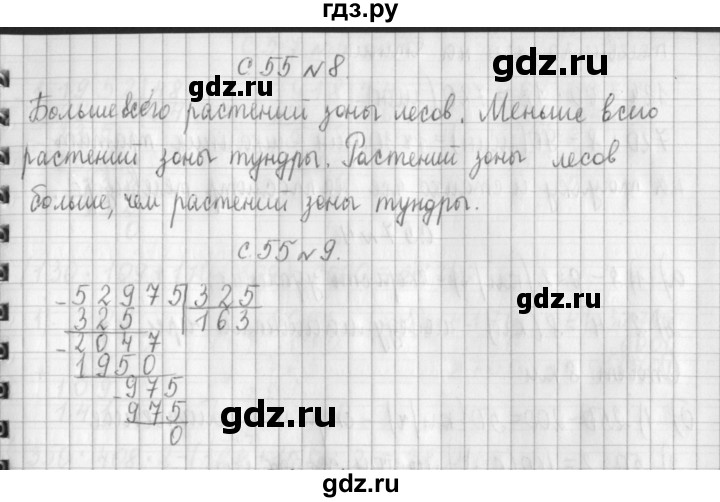 гдз.ру
с. 55 №8.
Больше всего растений зоны лесов. Меньше всего
растений зоны тундры. Растений зоны лесов
больше, чем растений зоны тундры.
с. 55 №9.
- 52975 | 325
325 | 163
- 2047
1950
- 975
975
0
гдз.ру
гдз.ру
гдз.ру
гдз.ру
гдз.ру
гдз.ру